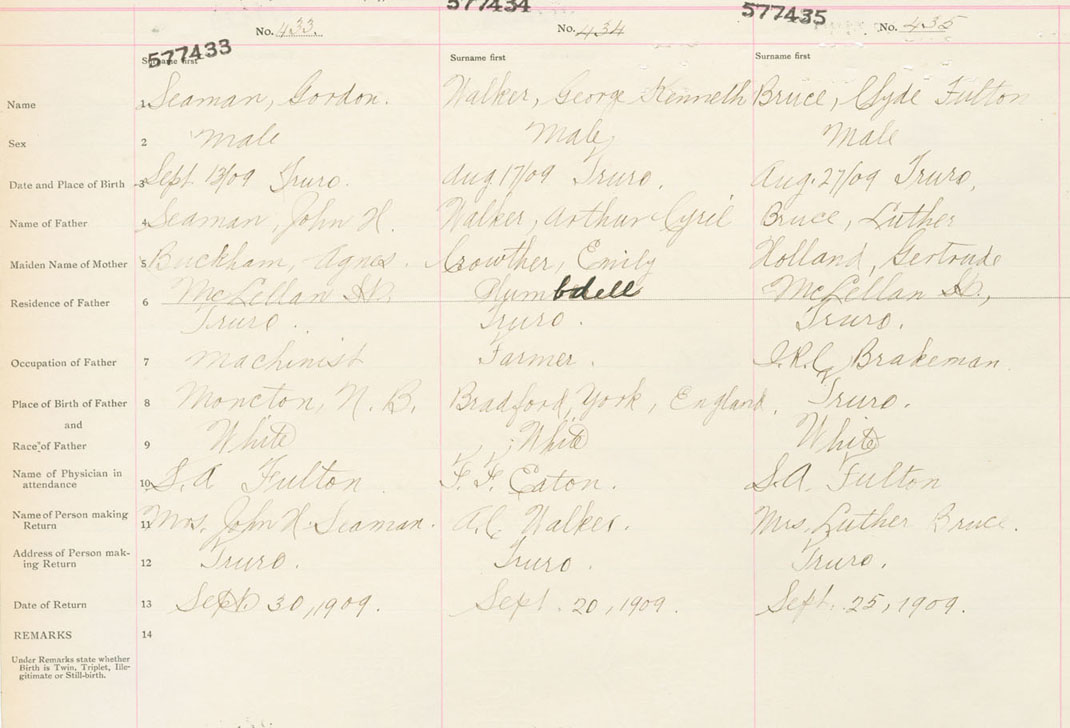 577434
577435
No. 433.
No. 434
No. 435
577433
Surname first
Surname first
Surname first
Name 1 Seaman, Gordon. Walker, George Kenneth Bruce, Clyde Fulton
Sex 2 male Male Male
Date and Place of Birth 3 Sept 13/09 Truro. Aug 17/09 Truro. Aug. 27/09 Truro,
Name of Father 4 Seaman, John H. Walker, Arthur Cyril Bruce, Luther
Maiden Name of Mother 5 Buckham, Agnes. Crowther, Emily Holland, Gertrude
Residence of Father 6 McLellan St. McLellan St.,
Truro. Truro. Truro.
Occupation of Father 7 Machinist Farmer. I.R.C. Brakeman.
Place of Birth of Father 8 Moncton, N. B. Bradford, York, England. Truro.
and
Race of Father 9 White White White
Name of Physician in
attendance 10 S. A Fulton F. F. Eaton. S. A. Fulton
Name of Person making
Return 11 Mrs. John H. Seaman. A. C. Walker. Mrs. Luther Bruce.
Address of Person mak-
ing Return 12 Truro. Truro. Truro.
Date of Return 13 Sept 30, 1909. Sept. 20, 1909. Sept. 25, 1909.
REMARKS 14
Under Remarks state whether
Birth is Twin, Triplet, Ille-
gitimate or Still-birth.